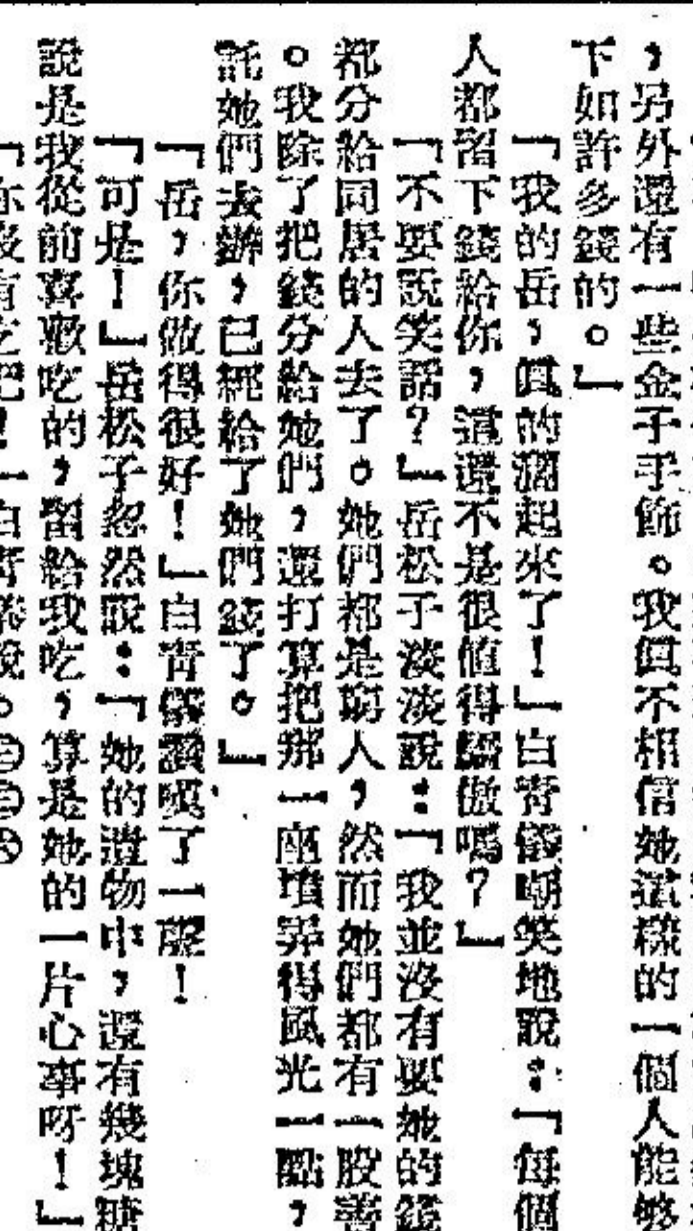 ，另外還有一些金子手飾。我但不相信她這樣的一個人能夠
下如許多錢的。」
「我的岳，眞的濶起來了！」白靑儀嘲笑地說：「每個
人都留下錢給你，這還不是很值得驕傲嗎？」
「不要說笑話？」岳松子淡淡說：「我並沒有要她的錢
都分給同居的人去了。她們都是窮人，然而她們都有一股善
。我除了把錢分給她們，還打算把那一座墳弄得風光一點，
託她們去辦，已經給了她們錢了。」
「岳，你做得很好！」白靑儀讚嘆了一聲！
「可是！」岳松子忽然說：「她的遺物中，還有幾塊糖
說是我從前喜歡吃的，留給我吃，算是她的一片心事呀！」